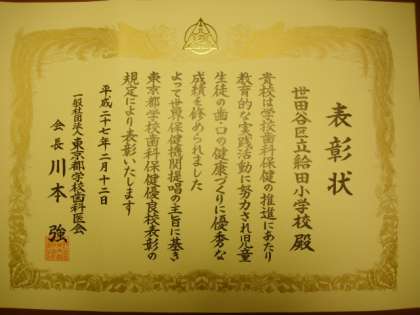 表彰状
世田谷区立給田小学校 殿
貴校は学校歯科保健の推進にあたり
教育的な実践活動に努力され児童
生徒の歯・口の健康づくりに優秀な
成績を修められました
よって世界保健機関提唱の主旨に基き
東京都学校歯科保健優良校表彰の
規定により表彰いたします
平成二十七年二月十二日
一般社団法人東京都学校歯科医会
会長 川本 強